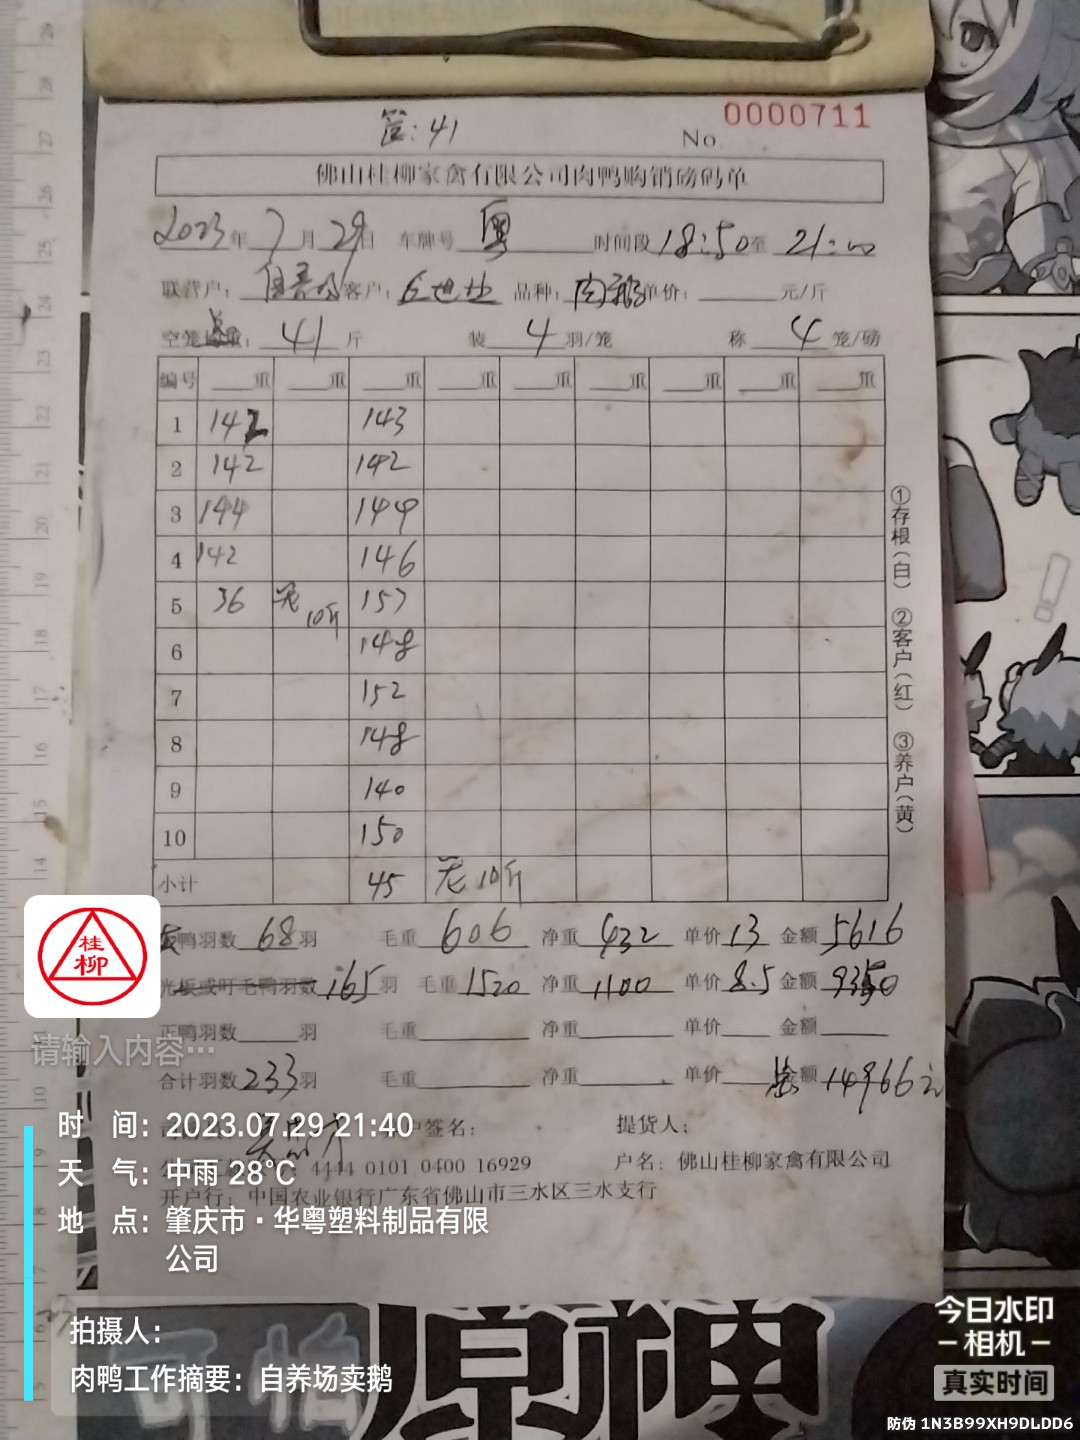 筐:41
No 0000711
佛山桂柳家禽有限公司肉鸭购销磅码单
2023年7月29日 车牌号 粤 时间段18:50至 21:00
联营户: 客户: 品种:肉鹅 单价: 元/斤
空笼 41斤 装 4 羽/笼 称 4 笼/磅
编号 重 重 重 重 重 重 重 重 重
1 142 143
2 142 142
3 144 144
4 142 146
5 36 10斤 157
6 148
7 152
8 148
9 140
10 150
小计 45 10斤
鸭羽数 68羽 毛重 606 净重 432 单价 13 金额 5616
光板或盯毛鸭羽数 165羽 毛重 1520 净重 1100 单价 8.5 金额 9350
正鸭羽数 羽 毛重 净重 单价 金额
合计羽数 233羽 毛重 净重 单价 总金额 14966元
户签名: 提货人:
4444 0101 0400 16929 户名: 佛山桂柳家禽有限公司
开户行: 中国农业银行广东省佛山市三水区三水支行
①存根(白) ②客户(红) ③养户(黄)
桂柳
请输入内容...
时 间: 2023.07.29 21:40
天 气: 中雨 28℃
地 点: 肇庆市·华粤塑料制品有限
公司
拍摄人:
肉鸭工作摘要: 自养场卖鹅
可怕
原神
今日水印
-相机-
真实时间
防伪 1N3B99XH9DLDD6